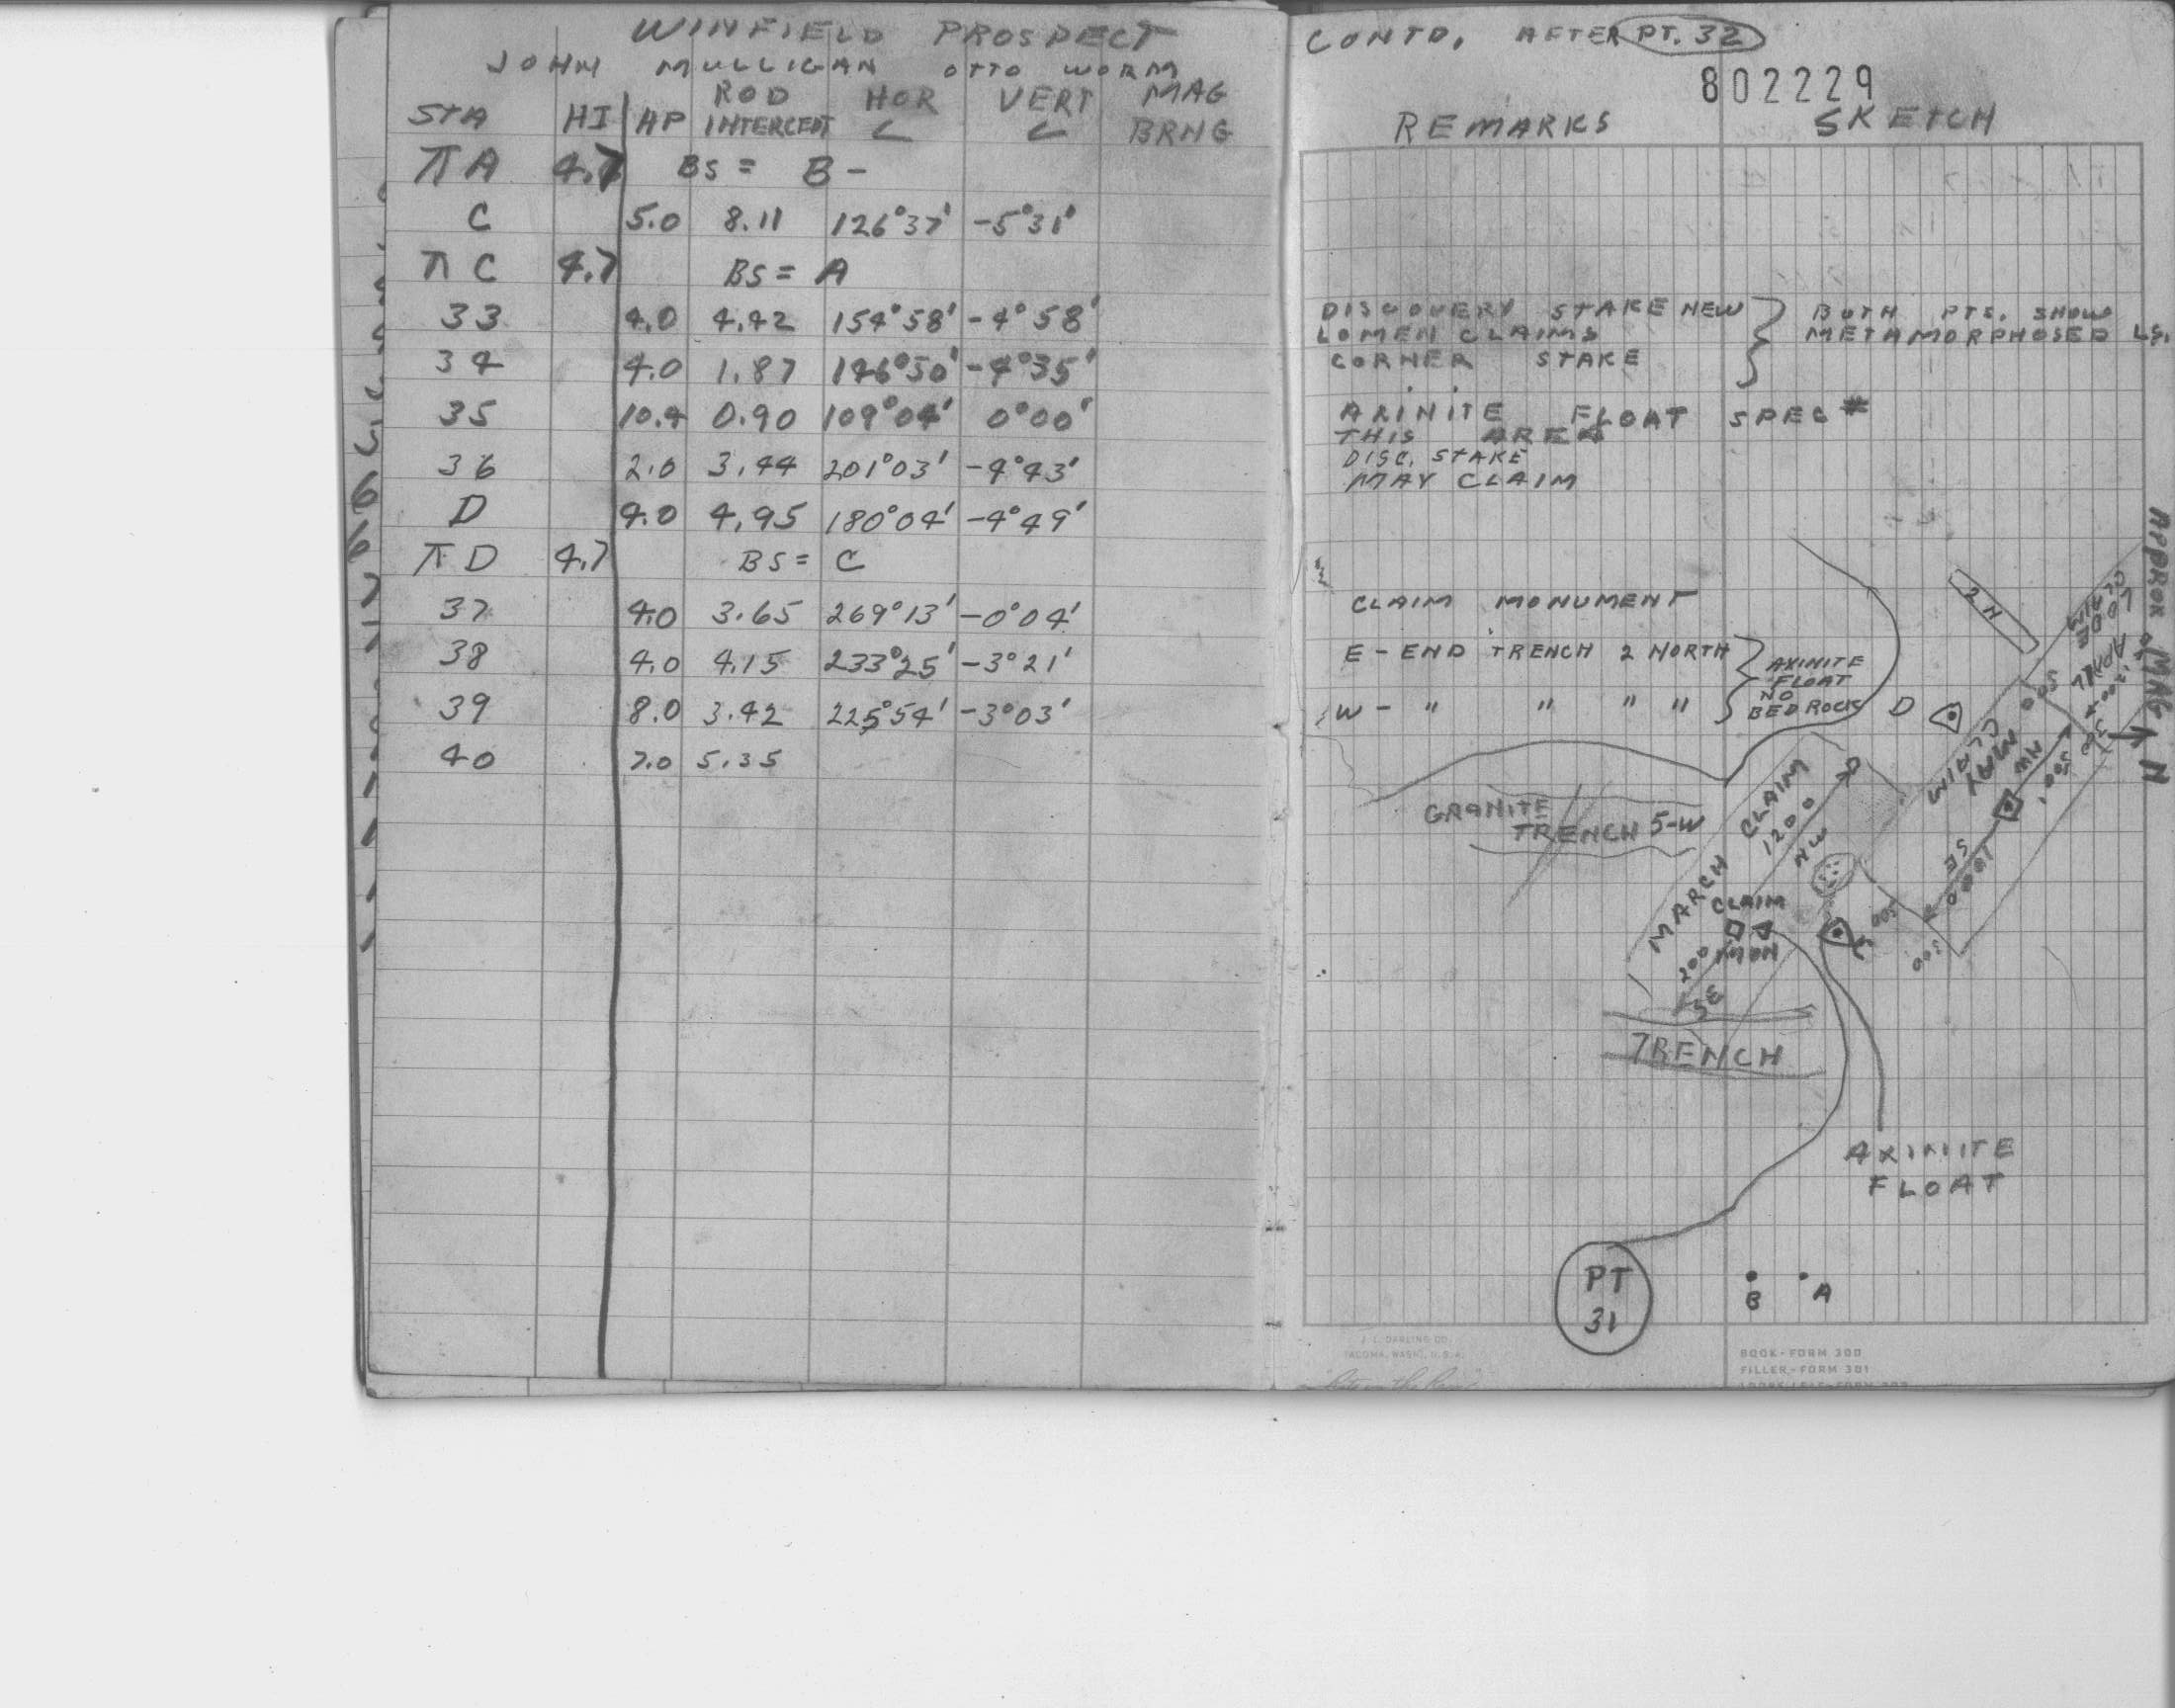 WINFIELD PROSPECT
JOHN MULLIGAN OTTO WORM
STA HI HP ROD INTERCEPT HOR ∠ VERT ∠ MAG BRNG
πA 4.7 BS = B -
C 5.0 8.11 126°37' -5°31'
πC 4.7 BS = A
33 4.0 4.42 154°58' -4°58'
34 4.0 1.87 146°50' -4°35'
35 10.4 0.90 109°04' 0°00'
36 2.0 3.44 201°03' -4°43'
D 4.0 4.95 180°04' -4°49'
πD 4.7 BS = C
37 4.0 3.65 269°13' -0°04'
38 4.0 4.15 233°25' -3°21'
39 8.0 3.42 225°54' -3°03'
40 7.0 5.35
CONTD. AFTER PT. 32
802229
REMARKS SKETCH
DISCOVERY STAKE NEW
LOMEN CLAIMS
CORNER STAKE
BOTH PTS. SHOW
METAMORPHOSED LS.
AXINITE FLOAT SPEC #
THIS AREA
DISC. STAKE
MAY CLAIM
CLAIM MONUMENT
E - END TRENCH 2 NORTH
W - " " " "
AXINITE
FLOAT
NO
BEDROCK
D
2 N
APPROX MAG N
LODE
CLAIM
APRIL
1200'
300
50
500'
NW
MAY
CLAIM
SE
1000
500
300
GRANITE
TRENCH 5-W
MARCH CLAIM
1200
NW
CLAIM
MON
200
SE
C
TRENCH
AXINITE
FLOAT
PT
31
B A
J. L. DARLING CO.
TACOMA, WASH., U.S.A.
BOOK-FORM 300
FILLER-FORM 301